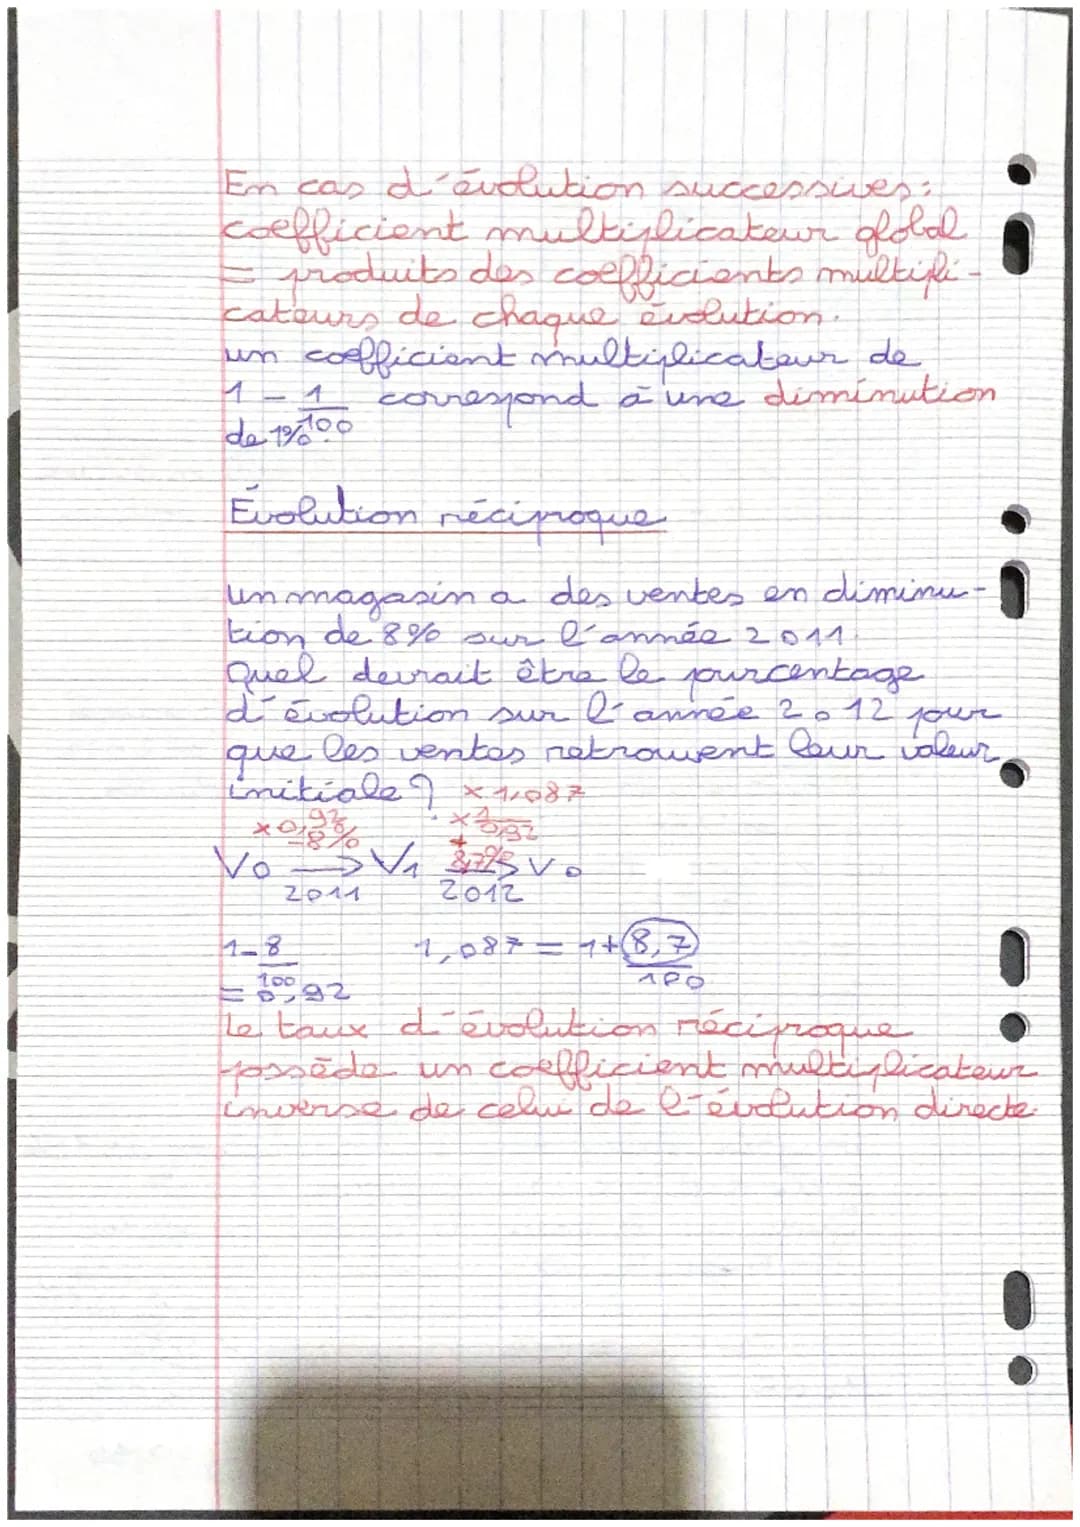 En cas d'évolution successives:
coefficient multiplicateur global
= produits des coefficients multipli-
cateurs de chaque évolution.
un coefficient multiplicateur de
1 - 1/100 correspond à une diminution
de 1%.
Évolution réciproque
un magasin a des ventes en diminu-
tion de 8% sur l'année 2011.
Quel devrait être le pourcentage
d'évolution sur l'année 2012 pour
que les ventes retrouvent leur valeur
initiale ? × 1,087
× 0,92 × 1/0,92
-8% + 8,7%
V0 → V1 → V0
2011 2012
1 - 8/100 1,087 = 1 + 8,7/100
= 0,92
Le taux d'évolution réciproque
possède un coefficient multiplicateur
inverse de celui de l'évolution directe.